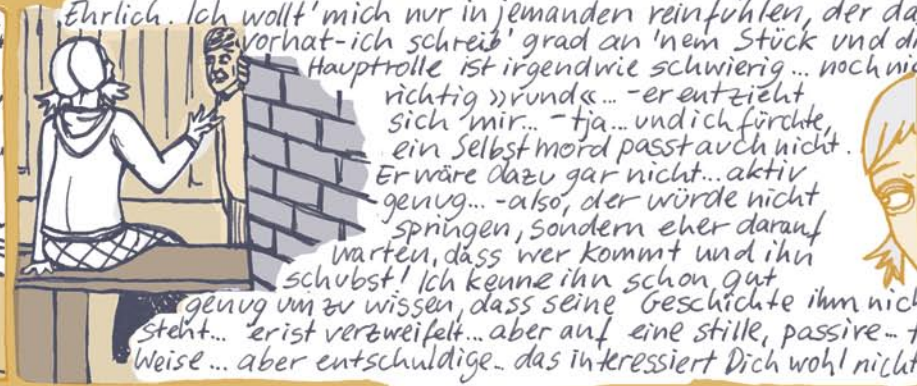 Ehrlich. Ich wollt' mich nur in jemanden reinfühlen, der da
vorhat-ich schreib' grad an 'nem Stück und di
Hauptrolle ist irgendwie schwierig... noch nic
richtig »rund«... -er entzieht
sich mir... -tja... und ich fürchte,
ein Selbstmord passt auch nicht.
Er wäre dazu gar nicht... aktiv
genug... -also, der würde nicht
springen, sondern eher darauf
warten, dass wer kommt und ihn
schubst! Ich kenne ihn schon gut
genug um zu wissen, dass seine Geschichte ihm nich
steht... er ist verzweifelt... aber auf eine stille, passive...
Weise... aber entschuldige... das interessiert Dich wohl nicht